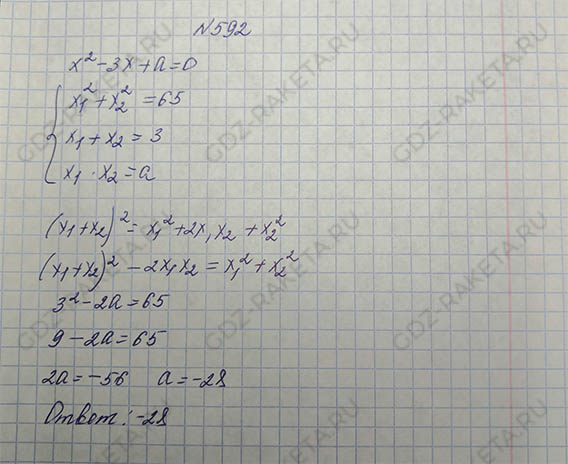 N592
x² - 3x + a = 0
x₁² + x₂² = 65
x₁ + x₂ = 3
x₁ · x₂ = a
(x₁ + x₂)² = x₁² + 2x₁x₂ + x₂²
(x₁ + x₂)² - 2x₁x₂ = x₁² + x₂²
3² - 2a = 65
9 - 2a = 65
2a = -56 a = -28
Ответ: -28
GDZ-RAKETA.RU
GDZ-RAKETA.RU
GDZ-RAKETA.RU
GDZ-RAKETA.RU
GDZ-RAKETA.RU
GDZ-RAKETA.RU